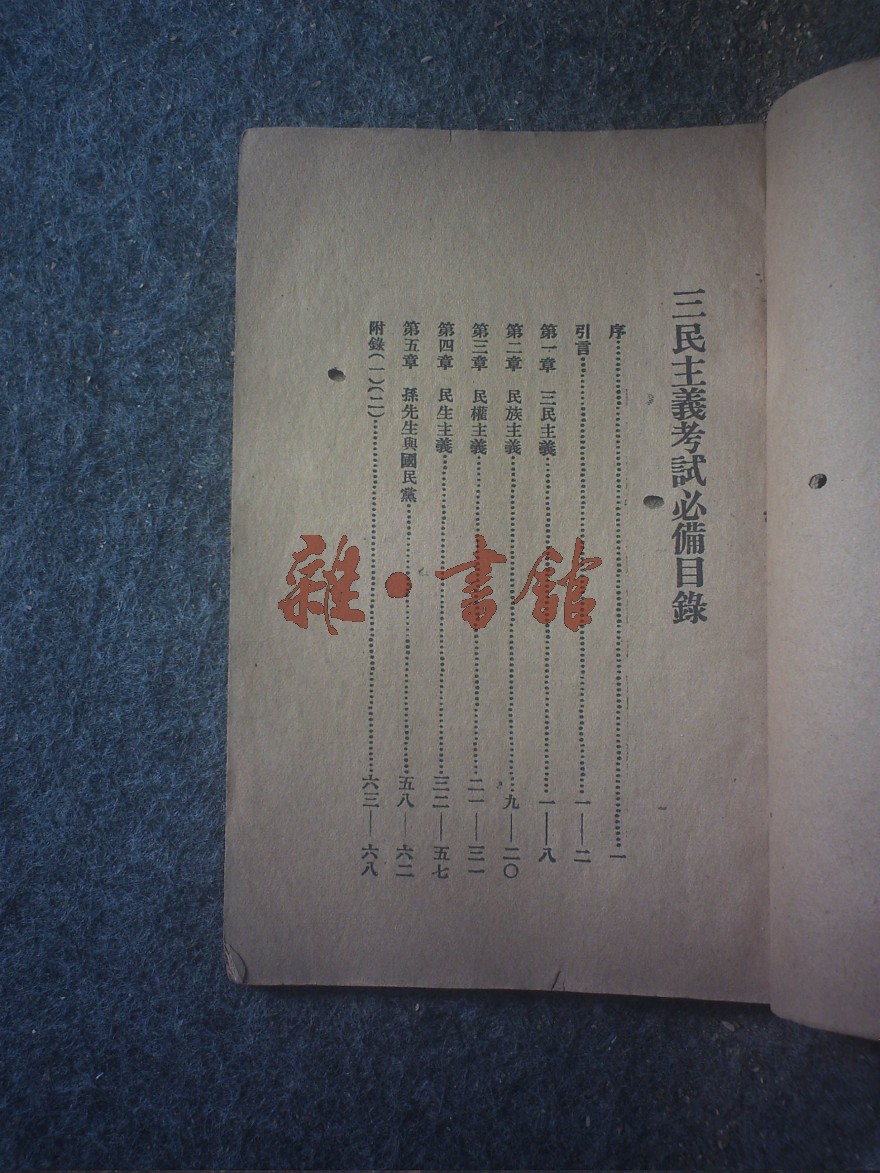 三民主義考試必備目錄
序……一
引言……一—二
第一章 三民主義……一—八
第二章 民族主義……九—二〇
第三章 民權主義……二一—三一
第四章 民生主義……三二—五七
第五章 孫先生與國民黨……五八—六二
附錄(一)(二)……六三—六八
雜·書館